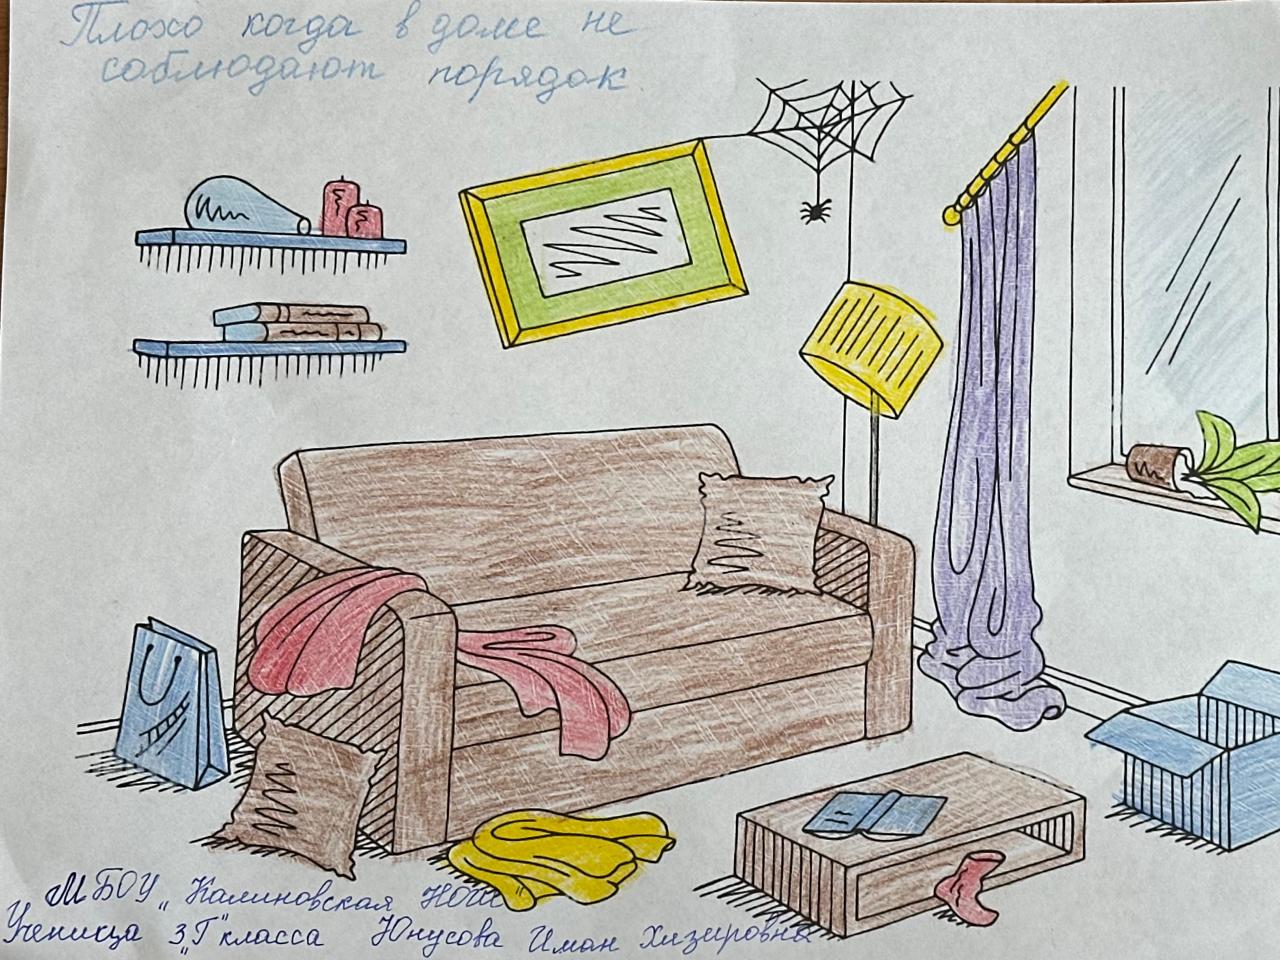 Плохо когда в доме не
соблюдают порядок
МБОУ „Калиновская НОШ"
Ученица 3„Г" класса Юнусова Иман Хизировна